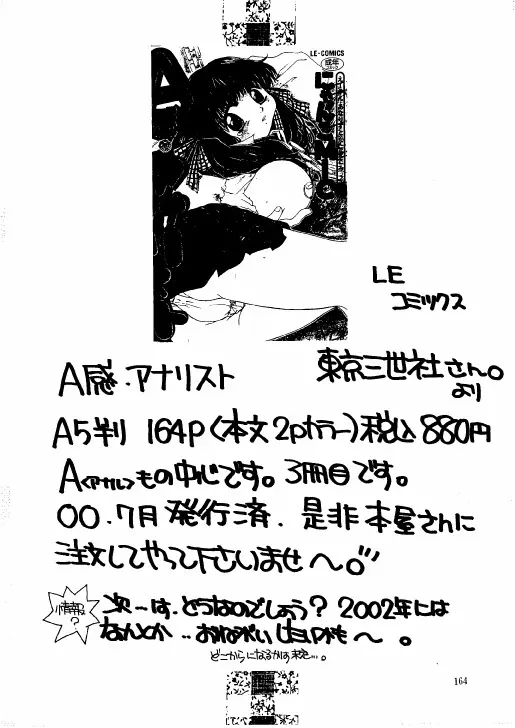 LE・COMICS
成年
LE
コミックス
東京三世社さん。
より
A感・アナリスト
A5判 164P〈本文2pカラー〉税込880円
A〈アナル〉もの中心です。3冊目です。
00.7月 発行済.是非本屋さんに
注文してやって下さいませ〜。
情報?
次ーは.どうなのでしょう? 2002年には
なんとか‥
どこからになるかは
164